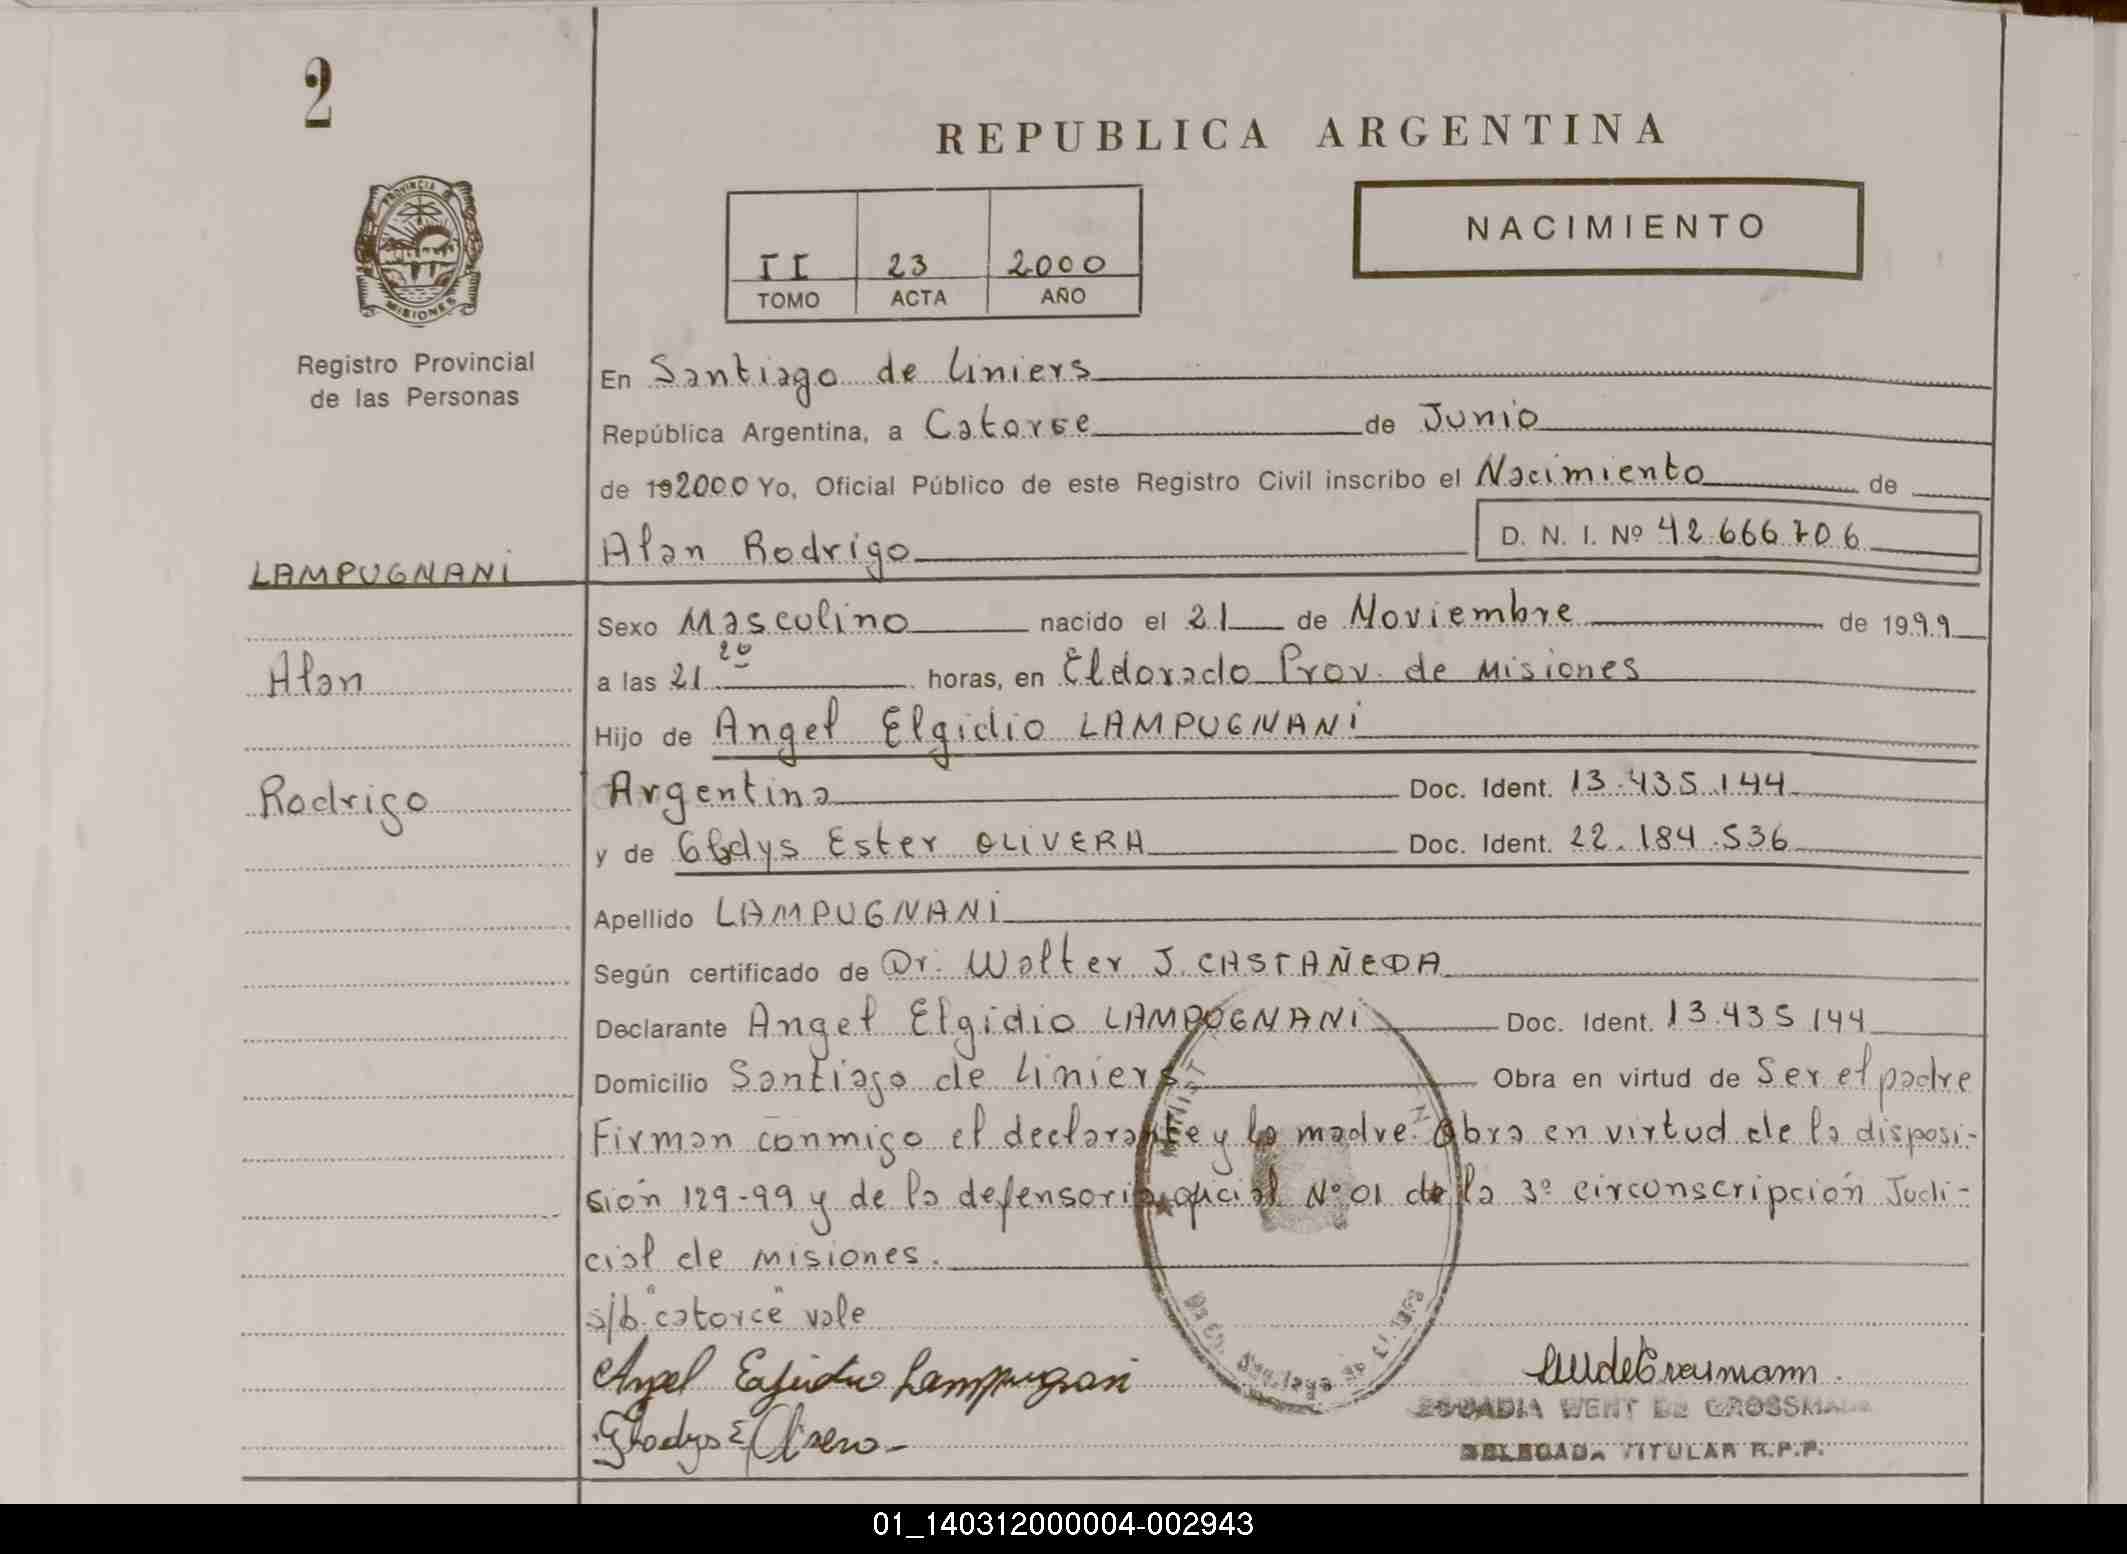 2
REPUBLICA ARGENTINA
NACIMIENTO
II 23 2000
TOMO ACTA AÑO
PROVINCIA DE
MISIONES
Registro Provincial
de las Personas
En Santiago de Liniers
República Argentina, a Catorce de Junio
de 192000 Yo, Oficial Público de este Registro Civil inscribo el Nacimiento de
Alan Rodrigo D. N. I. Nº 42.666.706
LAMPUGNANI
Sexo Masculino nacido el 21 de Noviembre de 1999
Alan
a las 21 20 horas, en Eldorado Prov. de Misiones
Hijo de Angel Elgidio LAMPUGNANI
Rodrigo
Argentina Doc. Ident. 13.435.144
y de Gladys Ester OLIVERA Doc. Ident. 22.184.536
Apellido LAMPUGNANI
Según certificado de Dr. Walter J. CASTAÑEDA
Declarante Angel Elgidio LAMPUGNANI Doc. Ident. 13.435 144
Domicilio Santiago de Liniers Obra en virtud de Ser el padre
Firman conmigo el declarante y la madre. Obra en virtud de la disposi-
sión 129-99 y de la defensoria oficial Nº 01 de la 3º circonscripción Judi-
cial de misiones.
s/b "catorce" vale
Angel Egidio Lampugnani
Gladys E Olivera
WENT DE GROSSMANN
DELEGADA TITULAR R.P.P.
01_140312000004-002943